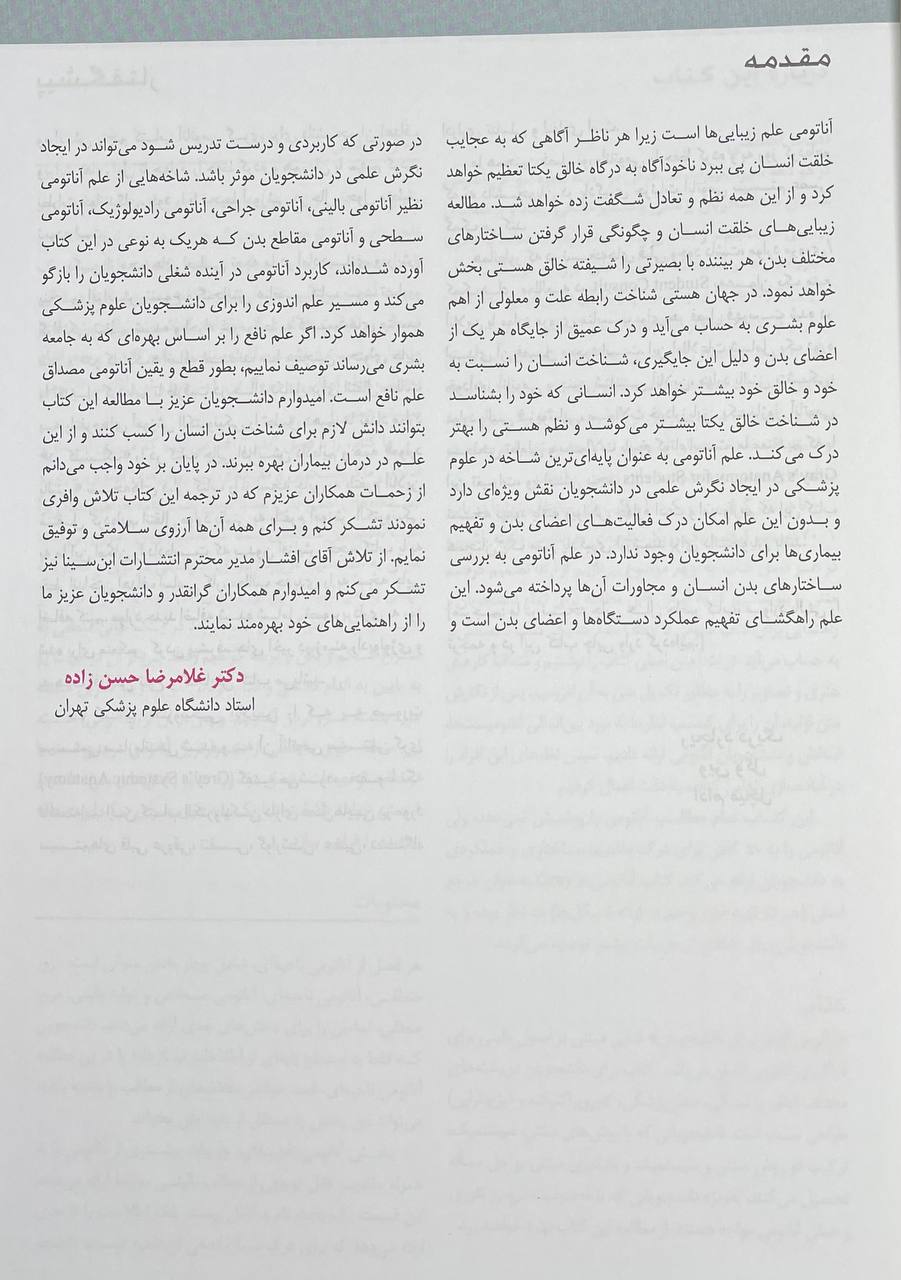 مقدمه
آناتومی علم زیبایی‌ها است زیرا هر ناظر آگاهی که به عجایب
خلقت انسان پی ببرد ناخودآگاه به درگاه خالق یکتا تعظیم خواهد
کرد و از این همه نظم و تعادل شگفت زده خواهد شد. مطالعه
زیبایی‌های خلقت انسان و چگونگی قرار گرفتن ساختارهای
مختلف بدن، هر بیننده با بصیرتی را شیفته خالق هستی بخش
خواهد نمود. در جهان هستی شناخت رابطه علت و معلولی از اهم
علوم بشری به حساب می‌آید و درک عمیق از جایگاه هر یک از
اعضای بدن و دلیل این جایگیری، شناخت انسان را نسبت به
خود و خالق خود بیشتر خواهد کرد. انسانی که خود را بشناسد
در شناخت خالق یکتا بیشتر می‌کوشد و نظم هستی را بهتر
درک می‌کند. علم آناتومی به عنوان پایه‌ای‌ترین شاخه در علوم
پزشکی در ایجاد نگرش علمی در دانشجویان نقش ویژه‌ای دارد
و بدون این علم امکان درک فعالیت‌های اعضای بدن و تفهیم
بیماری‌ها برای دانشجویان وجود ندارد. در علم آناتومی به بررسی
ساختارهای بدن انسان و مجاورات آن‌ها پرداخته می‌شود. این
علم راهگشای تفهیم عملکرد دستگاه‌ها و اعضای بدن است و
در صورتی که کاربردی و درست تدریس شود می‌تواند در ایجاد
نگرش علمی در دانشجویان موثر باشد. شاخه‌هایی از علم آناتومی
نظیر آناتومی بالینی، آناتومی جراحی، آناتومی رادیولوژیک، آناتومی
سطحی و آناتومی مقاطع بدن که هریک به نوعی در این کتاب
آورده شده‌اند، کاربرد آناتومی در آینده شغلی دانشجویان را بازگو
می‌کند و مسیر علم اندوزی را برای دانشجویان علوم پزشکی
هموار خواهد کرد. اگر علم نافع را بر اساس بهره‌ای که به جامعه
بشری می‌رساند توصیف نماییم، بطور قطع و یقین آناتومی مصداق
علم نافع است. امیدوارم دانشجویان عزیز با مطالعه این کتاب
بتوانند دانش لازم برای شناخت بدن انسان را کسب کنند و از این
علم در درمان بیماران بهره ببرند. در پایان بر خود واجب می‌دانم
از زحمات همکاران عزیزم که در ترجمه این کتاب تلاش وافری
نمودند تشکر کنم و برای همه آن‌ها آرزوی سلامتی و توفیق
نمایم. از تلاش آقای افشار مدیر محترم انتشارات ابن‌سینا نیز
تشکر می‌کنم و امیدوارم همکاران گرانقدر و دانشجویان عزیز ما
را از راهنمایی‌های خود بهره‌مند نمایند.
دکتر غلامرضا حسن زاده
استاد دانشگاه علوم پزشکی تهران